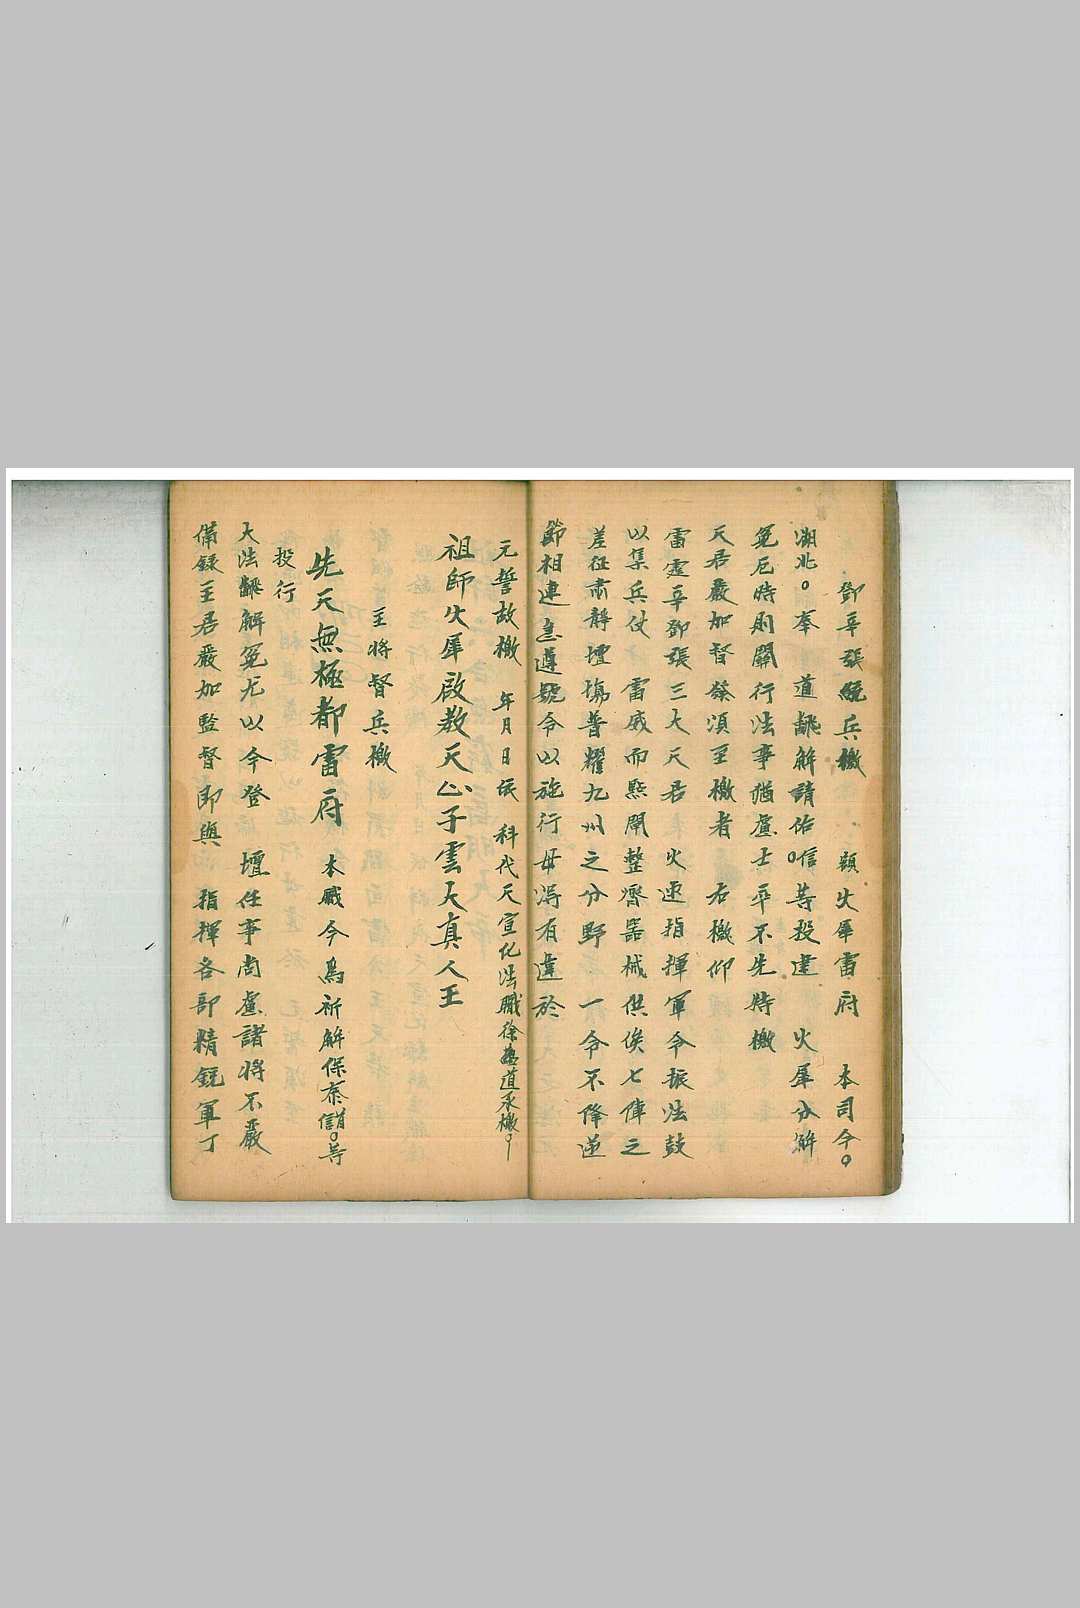 鄧辛張統兵檄　額火犀雷府　本司今○
湖北○奉　道 解請佑○信等投建　火犀分解
冤厄時則關行法事猶慮士卒不先特檄
天君嚴加督發須至檄者　右檄仰
雷霆辛鄧張三大天君　火速指揮軍令振法鼓
以集兵仗　雷威而點閱整齊器械供俟七陣之
差征肅靜壇場普耀九州之分野　一令不降逆
節相連 遵號令以施行毋得有違於
元誓故檄　年月日 　科代天宣化法職徐 道承檄
祖師火犀啟教天 子雲大真人王
主將督兵檄
先天無極都雷府　本職今為祈解保泰 信○等
投行
大法 解冤尤以今登　壇任事尚慮諸將不嚴
備錄主君嚴加監督即與　指揮各部精銳軍丁